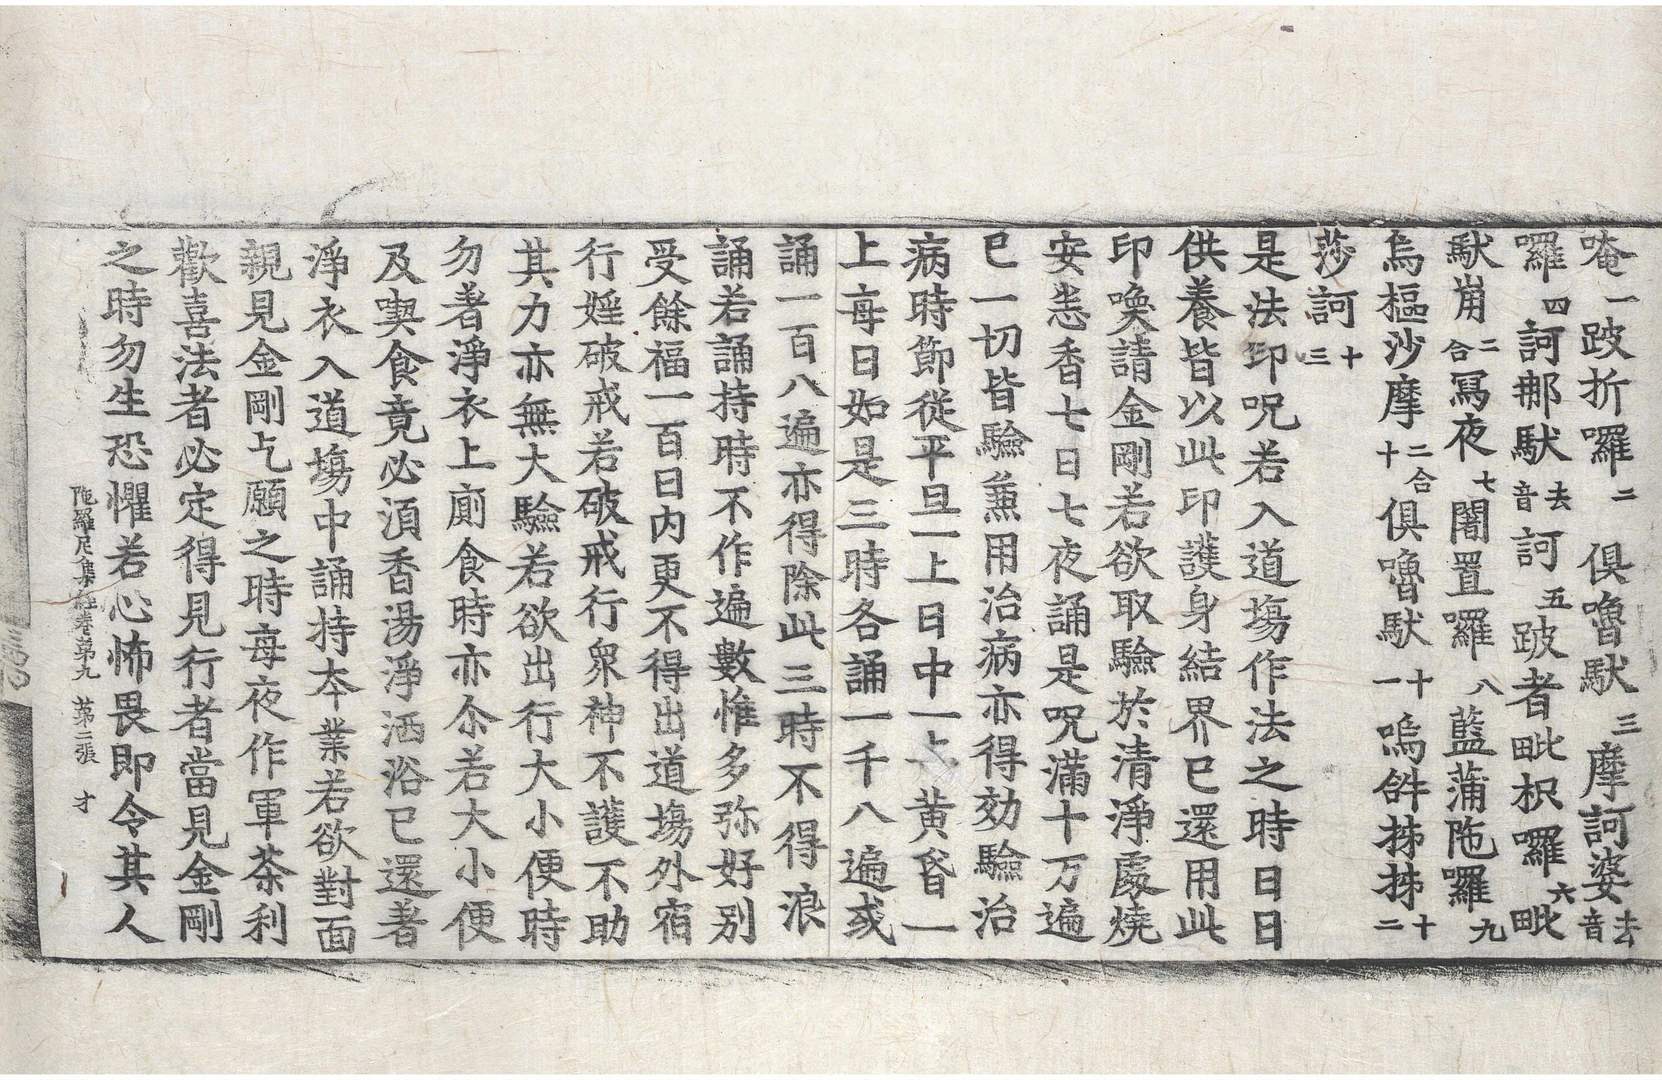 唵一跛折囉二俱嚕馱三摩訶婆去音
囉四訶那馱去音訶五跛者毗枳囉六毗
馱崩二合寫夜七闍置囉八藍蒲陁囉九
烏樞沙摩二合十俱嚕馱十一嗚𤙖𣑽𣑽十二
莎訶十三
是法印呪若入道場作法之時日日
供養皆以此印護身結界已還用此
印喚請金剛若欲取驗於清淨處燒
安悉香七日七夜誦是呪滿十万遍
已一切皆驗兼用治病亦得効驗治
病時節從平旦一上日中一上黃昏一
上每日如是三時各誦一千八遍或
誦一百八遍亦得除此三時不得浪
誦若誦持時不作遍數惟多弥好別
受餘福一百日內更不得出道場外宿
行婬破戒若破戒行衆神不護不助
其力亦無大驗若欲出行大小便時
勿著淨衣上廁食時亦尒若大小便
及喫食竟必湏香湯淨洒浴已還著
淨衣入道場中誦持本業若欲對面
親見金剛乞願之時每夜作軍荼利
歡喜法者必定得見行者當見金剛
之時勿生恐懼若心怖畏即令其人
陁羅尼集經卷第九 第二張 才